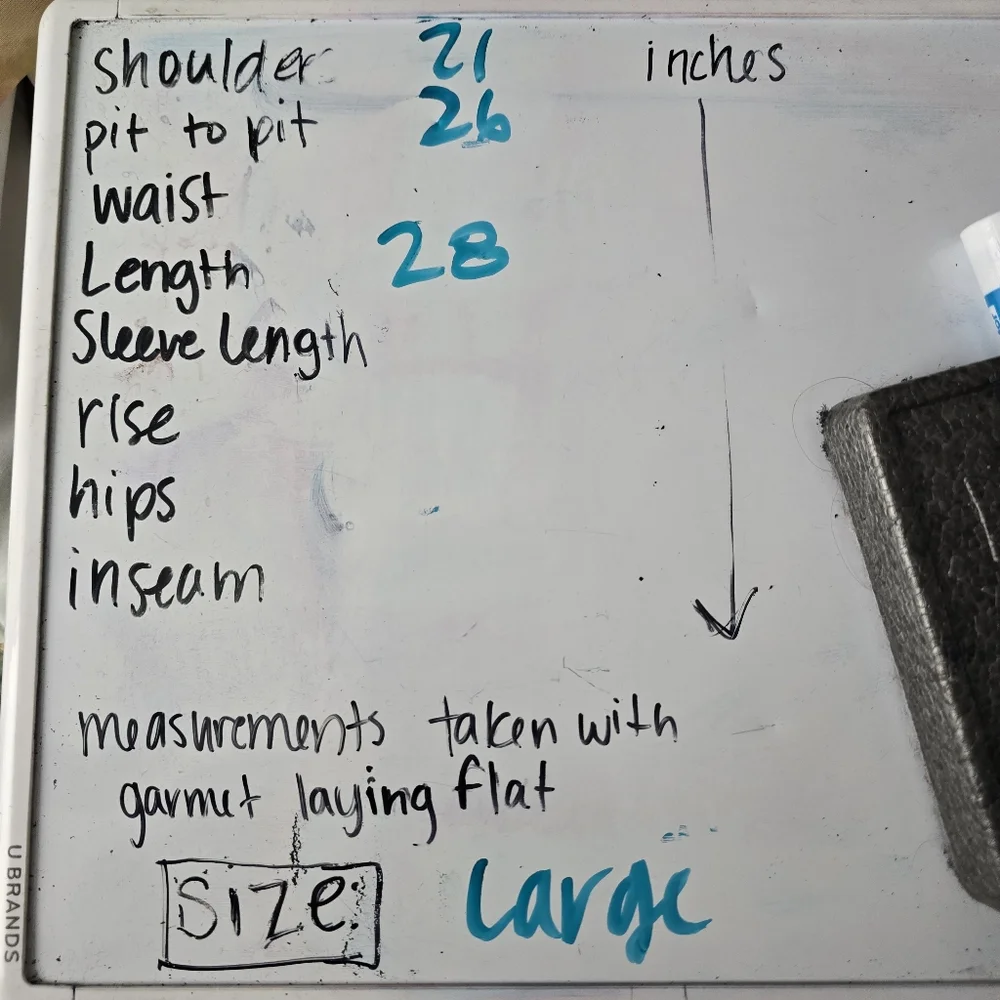 shoulder 21 inches
pit to pit 26
waist
Length 28
Sleeve length
rise
hips
inseam
measurements taken with
garmet laying flat
SIZE: Large
U BRANDS